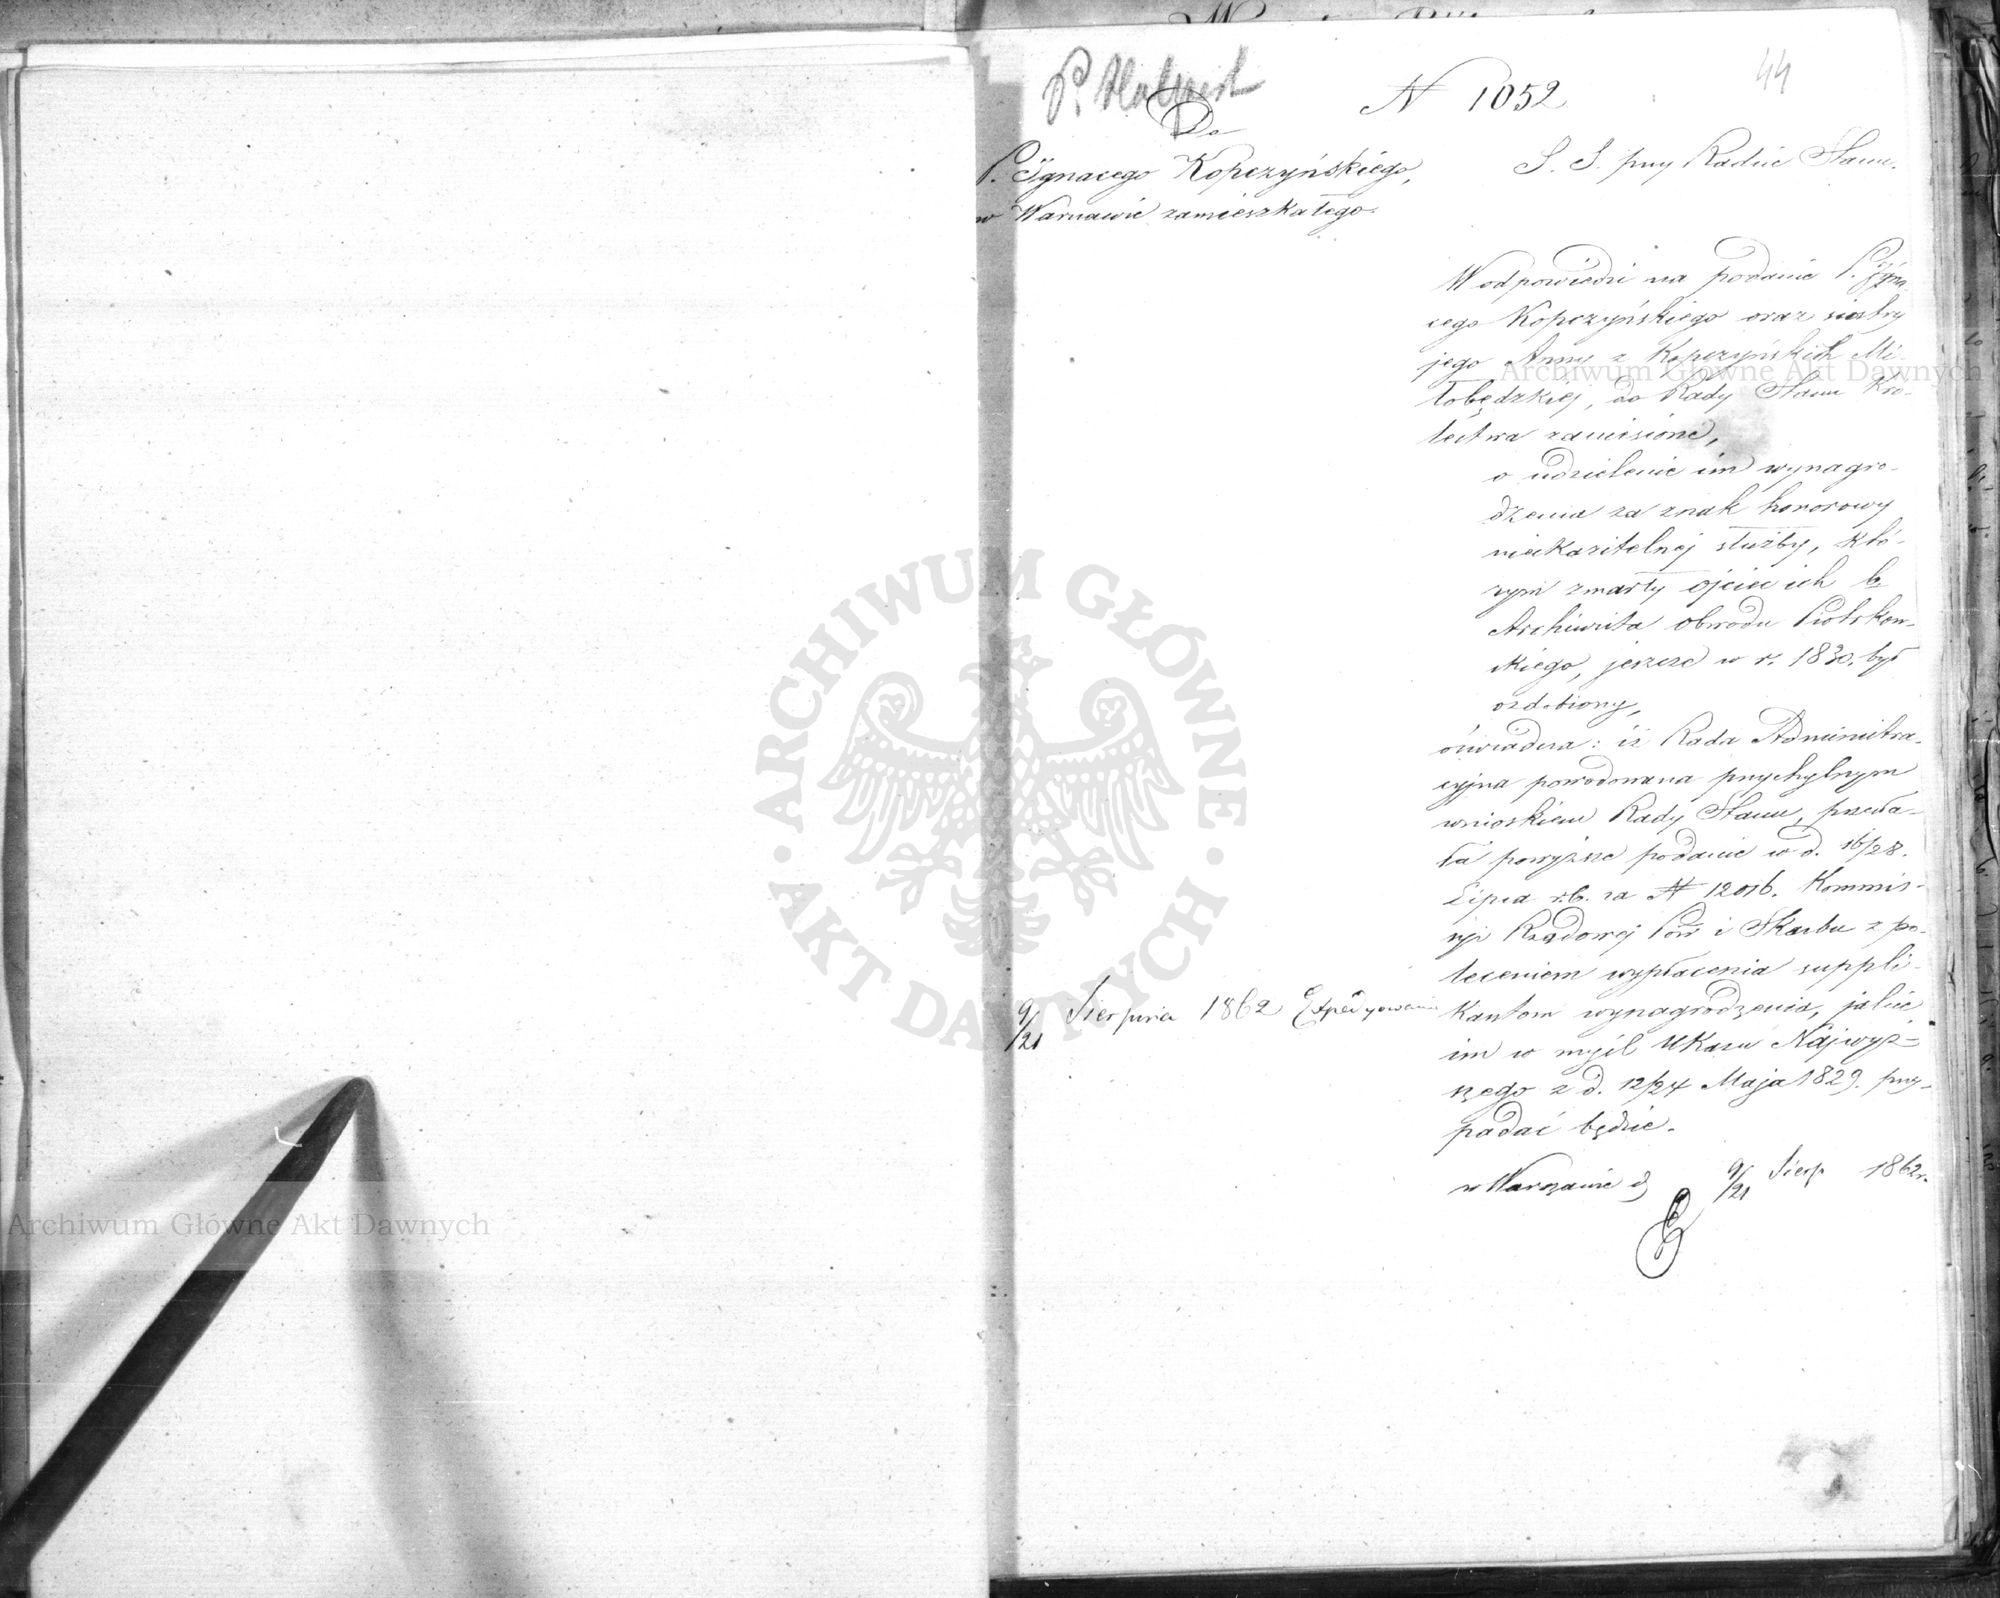 44
P. Halpert
N 1052
Do
P. Ignacego Kopczyńskiego,
w Warszawie zamieszkałego.
S. S. przy Radzie Stanu.
W odpowiedzi na podanie P. Igna-
cego Kopczyńskiego oraz siostry
jego Anny z Kopczyńskich Mi-
łobędzkiej, do Rady Stanu Kró-
lestwa zaniesione,
o udzielenie im wynagro-
dzenia za znak honorowy
nieskazitelnej służby, któ-
rym zmarły ojciec ich b.
Archiwista obwodu Piotrkow-
skiego, jeszcze w r. 1830. był
ozdobiony,
oświadcza: iż Rada Administra-
cyjna powodowana przychylnym
wnioskiem Rady Stanu, przesła-
ła powyższe podanie w d. 16/28.
Lipca r.b. za N 12016. Kommis-
syi Rządowej Przy i Skarbu z po-
leceniem wypłacenia suppli-
kantom wynagrodzenia, jakie
im w myśl Ukazu Najwyż-
szego z d. 12/24 Maja 1829. przy-
padać będzie.
9/21 Sierpnia 1862 Expedyowano
w Warszawie d 9/21 Sierp 1862 r.
Archiwum Główne Akt Dawnych
Archiwum Główne Akt Dawnych
ARCHIWUM GŁÓWNE
AKT DAWNYCH